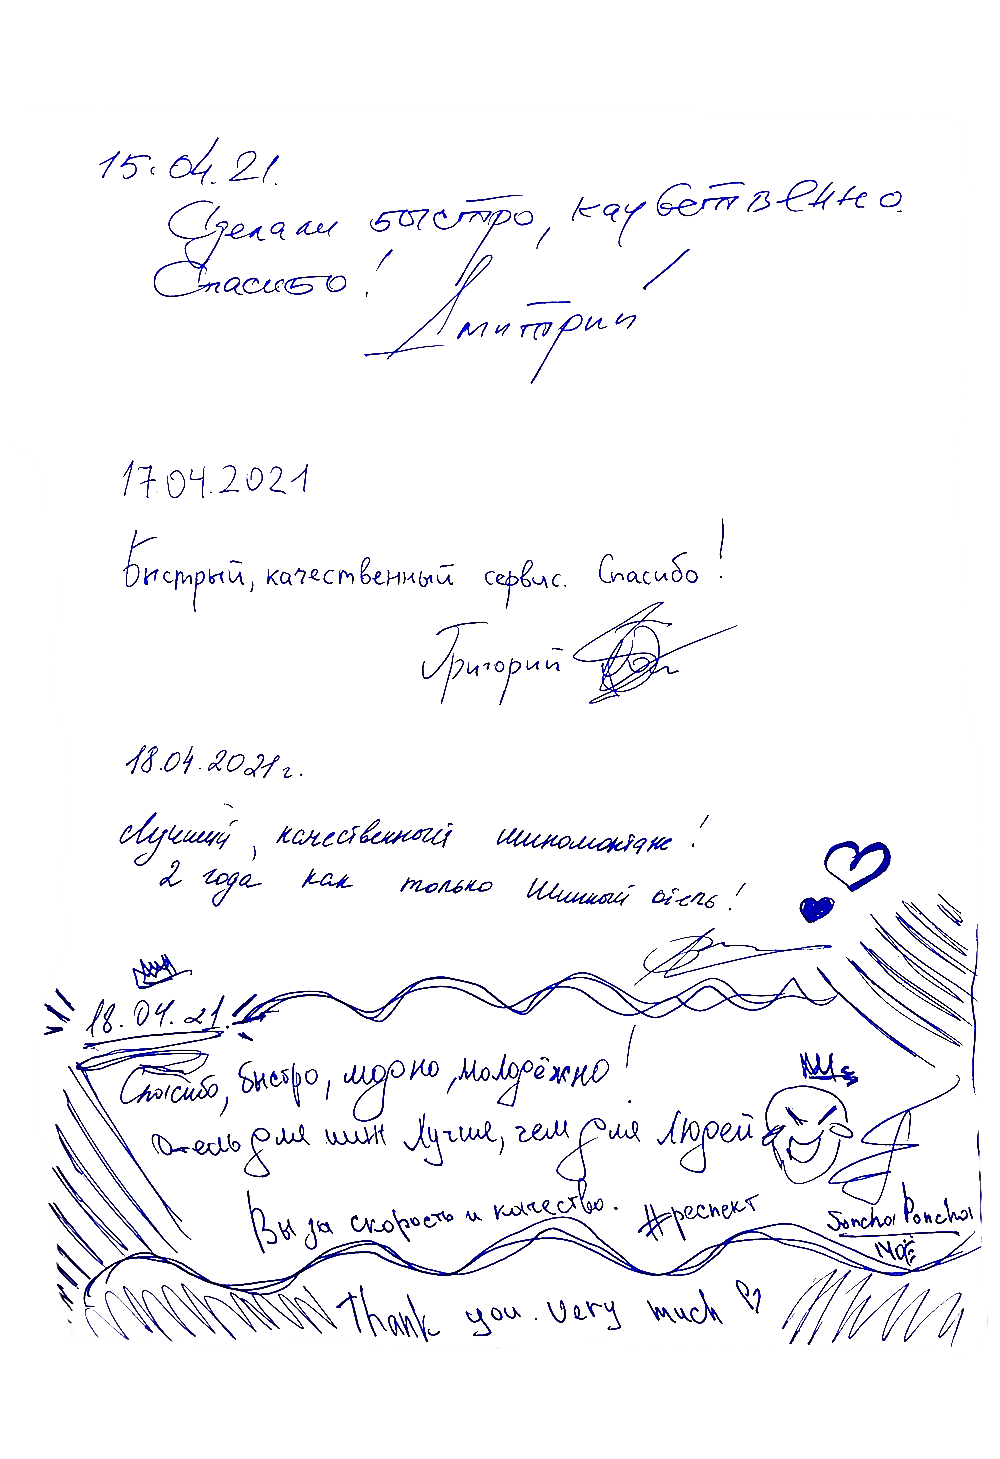 15.04.21.
Сделали быстро, качественно.
Спасибо!
Дмитрий
17.04.2021
Быстрый, качественный сервис. Спасибо!
Григорий
18.04.2021г.
Лучший, качественный шиномонтаж!
2 года как только Шинный отель!
18.04.21.
Спасибо, быстро, модно, молодёжно!
Отель для шин лучше, чем для людей
Вы за скорость и качество. #респект
Soncho Poncho
Thank you very much